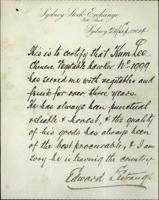 Sydney Stock Exchange
Sydney,
This is to certify that Kum Lee
Chinese Vegetable hawker No 1099
has served me with vegetables and
fruit for over three years.
He has always been punctual
reliable & honest, & the quality
of his goods has always been
of the best procurable, & I am
sorry he is leaving the country
Edward